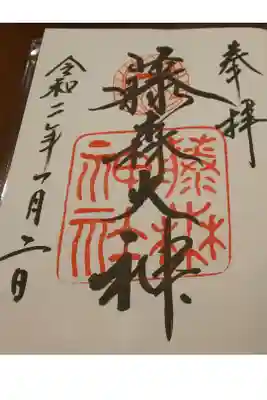 奉拝
藤森大神
藤森神社
令和二年一月二日